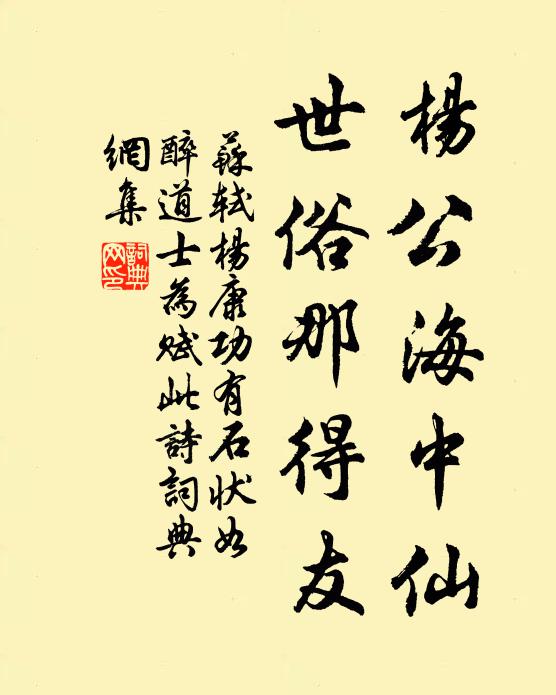 楊公海中仙
世俗那得友
蘇軾楊康功有石狀如
醉道士為賦此詩詞典
網集
詞典網印